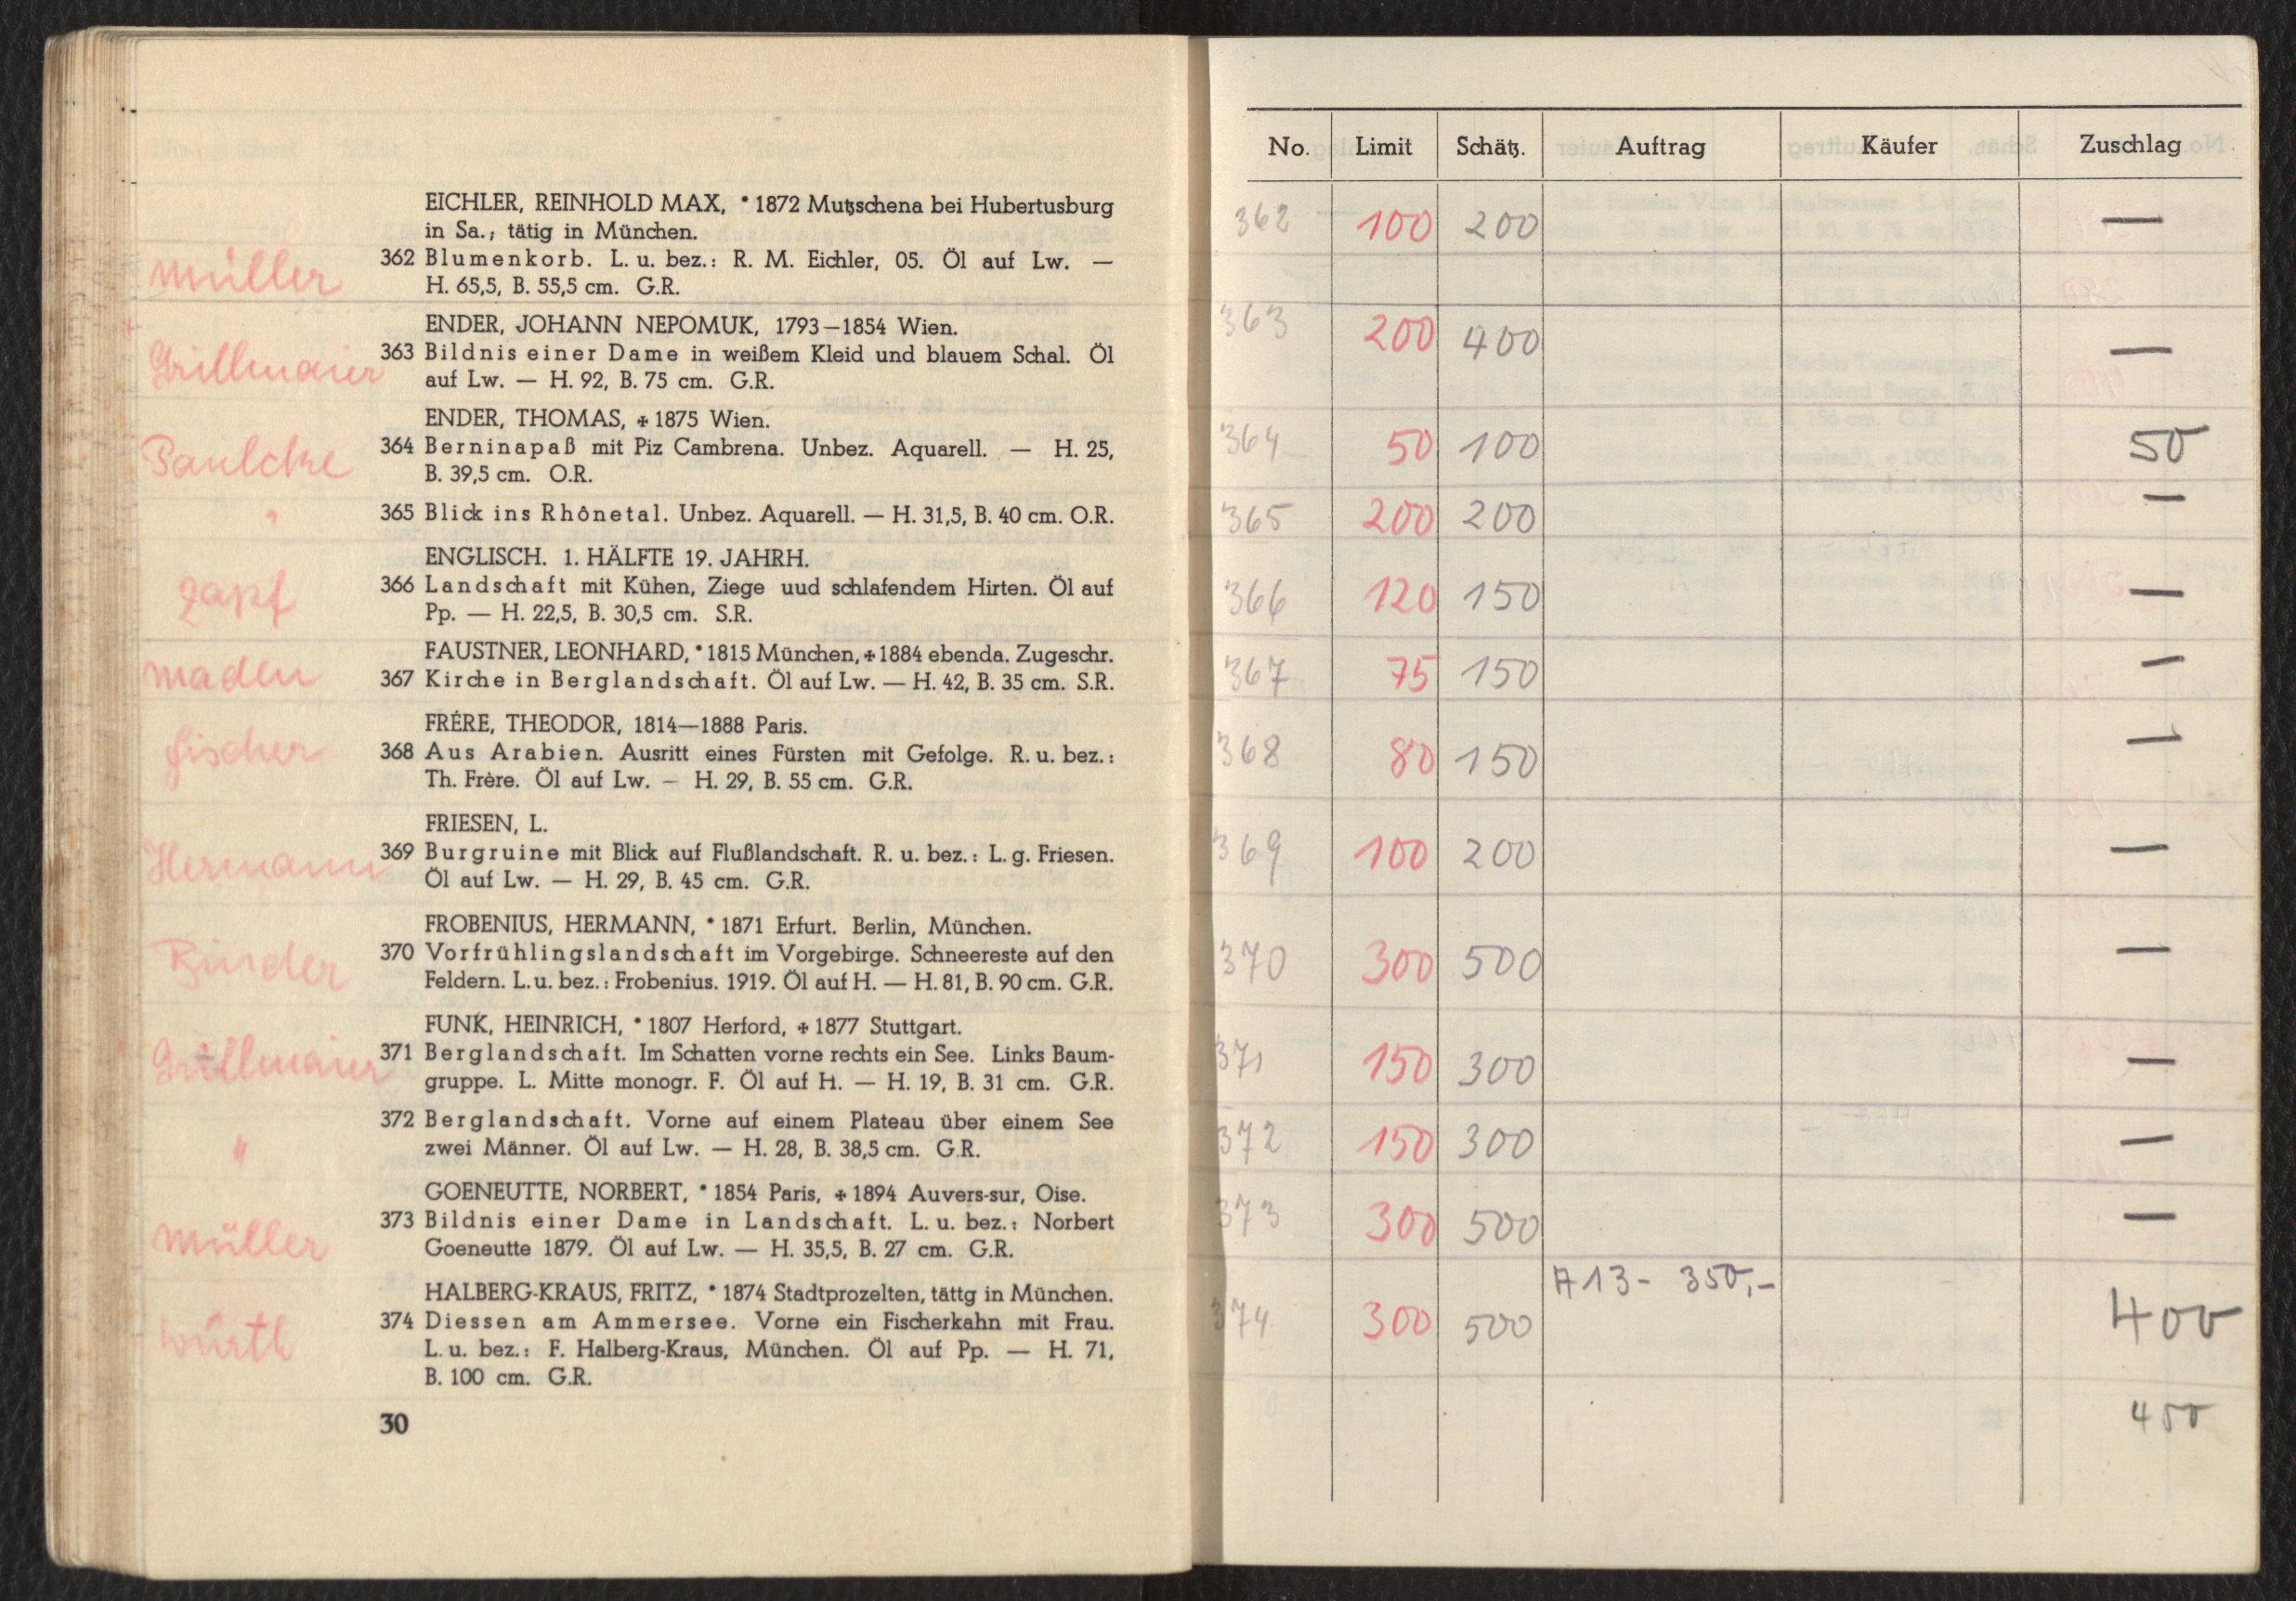 EICHLER, REINHOLD MAX, * 1872 Mutzschena bei Hubertusburg
in Sa.; tätig in München.
müller
362 Blumenkorb. L. u. bez.: R. M. Eichler, 05. Öl auf Lw. —
H. 65,5, B. 55,5 cm. G.R.
ENDER, JOHANN NEPOMUK, 1793—1854 Wien.
Grillmaier
363 Bildnis einer Dame in weißem Kleid und blauem Schal. Öl
auf Lw. — H. 92, B. 75 cm. G.R.
ENDER, THOMAS, ✠ 1875 Wien.
Paulcke
364 Berninapaß mit Piz Cambrena. Unbez. Aquarell. — H. 25,
B. 39,5 cm. O.R.
"
365 Blick ins Rhônetal. Unbez. Aquarell. — H. 31,5, B. 40 cm. O.R.
ENGLISCH. 1. HÄLFTE 19. JAHRH.
zapf
366 Landschaft mit Kühen, Ziege uud schlafendem Hirten. Öl auf
Pp. — H. 22,5, B. 30,5 cm. S.R.
FAUSTNER, LEONHARD, * 1815 München, ✠ 1884 ebenda. Zugeschr.
maden
367 Kirche in Berglandschaft. Öl auf Lw. — H. 42, B. 35 cm. S.R.
FRÉRE, THEODOR, 1814—1888 Paris.
fischer
368 Aus Arabien. Ausritt eines Fürsten mit Gefolge. R. u. bez.:
Th. Frère. Öl auf Lw. — H. 29, B. 55 cm. G.R.
FRIESEN, L.
Hermann
369 Burgruine mit Blick auf Flußlandschaft. R. u. bez.: L. g. Friesen.
Öl auf Lw. — H. 29, B. 45 cm. G.R.
FROBENIUS, HERMANN, * 1871 Erfurt. Berlin, München.
Binder
370 Vorfrühlingslandschaft im Vorgebirge. Schneereste auf den
Feldern. L. u. bez.: Frobenius. 1919. Öl auf H. — H. 81, B. 90 cm. G.R.
FUNK, HEINRICH, * 1807 Herford, ✠ 1877 Stuttgart.
Grillmaier
371 Berglandschaft. Im Schatten vorne rechts ein See. Links Baum-
gruppe. L. Mitte monogr. F. Öl auf H. — H. 19, B. 31 cm. G.R.
"
372 Berglandschaft. Vorne auf einem Plateau über einem See
zwei Männer. Öl auf Lw. — H. 28, B. 38,5 cm. G.R.
GOENEUTTE, NORBERT, * 1854 Paris, ✠ 1894 Auvers-sur, Oise.
müller
373 Bildnis einer Dame in Landschaft. L. u. bez.: Norbert
Goeneutte 1879. Öl auf Lw. — H. 35,5, B. 27 cm. G.R.
HALBERG-KRAUS, FRITZ, * 1874 Stadtprozelten, tättg in München.
würth
374 Diessen am Ammersee. Vorne ein Fischerkahn mit Frau.
L. u. bez.: F. Halberg-Kraus, München. Öl auf Pp. — H. 71,
B. 100 cm. G.R.
30
No. Limit Schätz. Auftrag Käufer Zuschlag
362 100 200 —
363 200 400 —
364 50 100 50
365 200 200 —
366 120 150 —
367 75 150 —
368 80 150 —
369 100 200 —
370 300 500 —
371 150 300 —
372 150 300 —
373 300 500 —
374 300 500 A 13 - 350,- 400
450